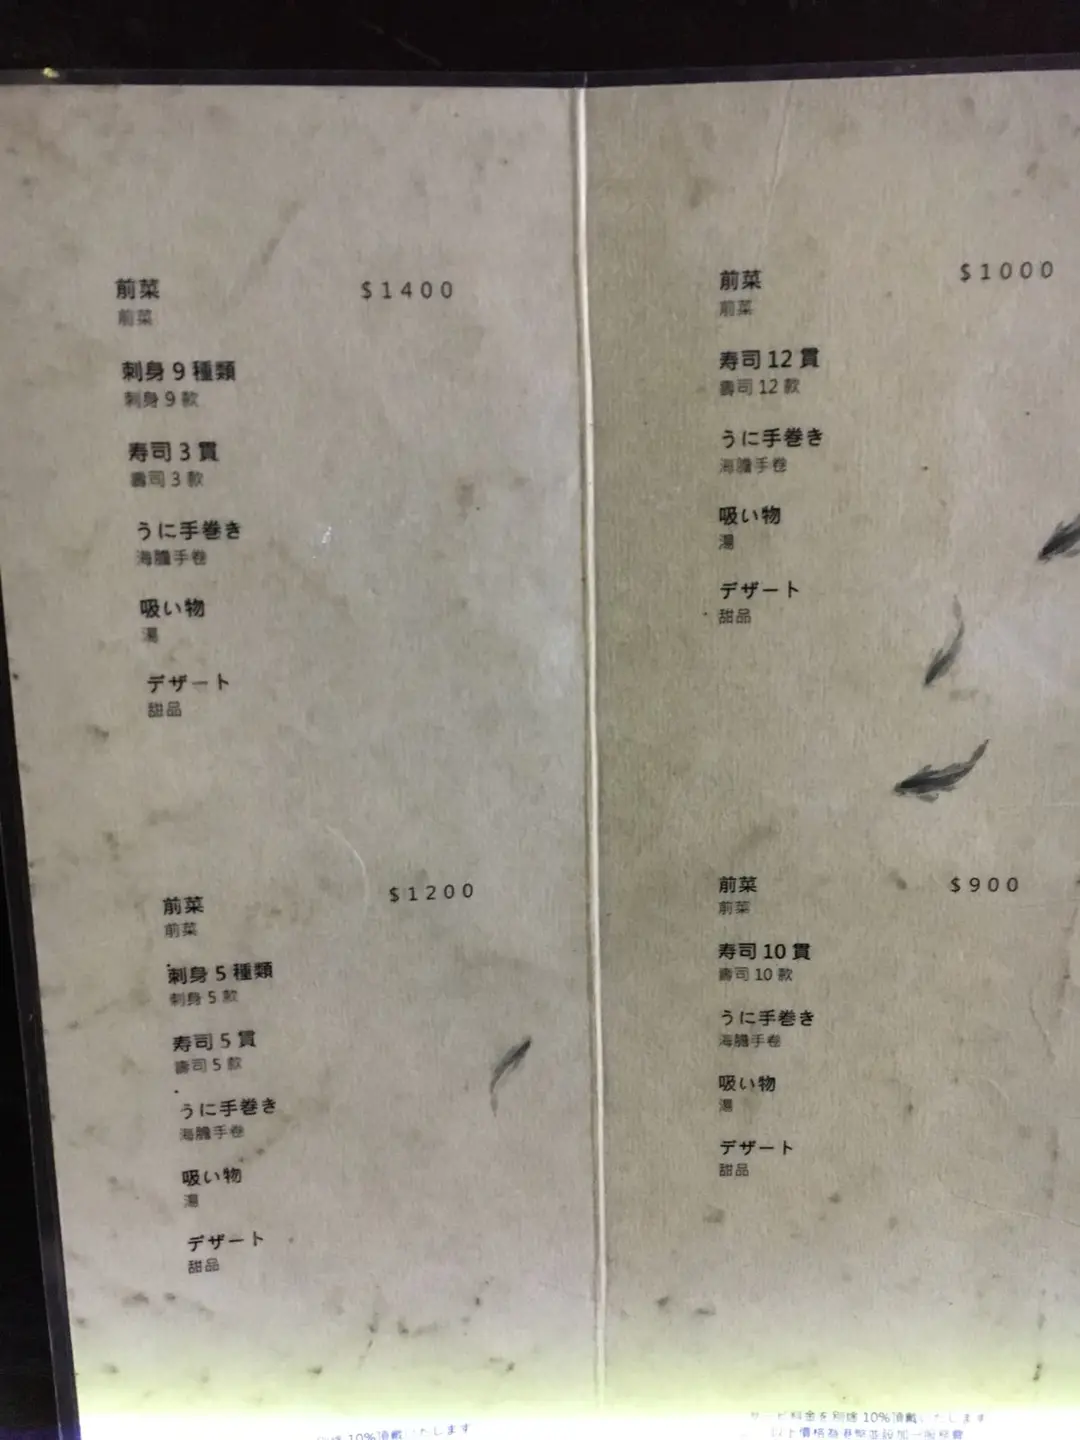 前菜 $1400
前菜
刺身 9 種類
刺身 9 款
寿司 3 貫
壽司 3 款
うに手巻き
海膽手卷
吸い物
湯
デザート
甜品
前菜 $1200
前菜
刺身 5 種類
刺身 5 款
寿司 5 貫
壽司 5 款
うに手巻き
海膽手卷
吸い物
湯
デザート
甜品
10%頂戴いたします
前菜 $1000
前菜
寿司 12 貫
壽司 12 款
うに手巻き
海膽手卷
吸い物
湯
デザート
甜品
前菜 $900
前菜
寿司 10 貫
壽司 10 款
うに手巻き
海膽手卷
吸い物
湯
デザート
甜品
サービ料金を別途 10%頂戴いたします
以上價格為港幣並設加一服務費